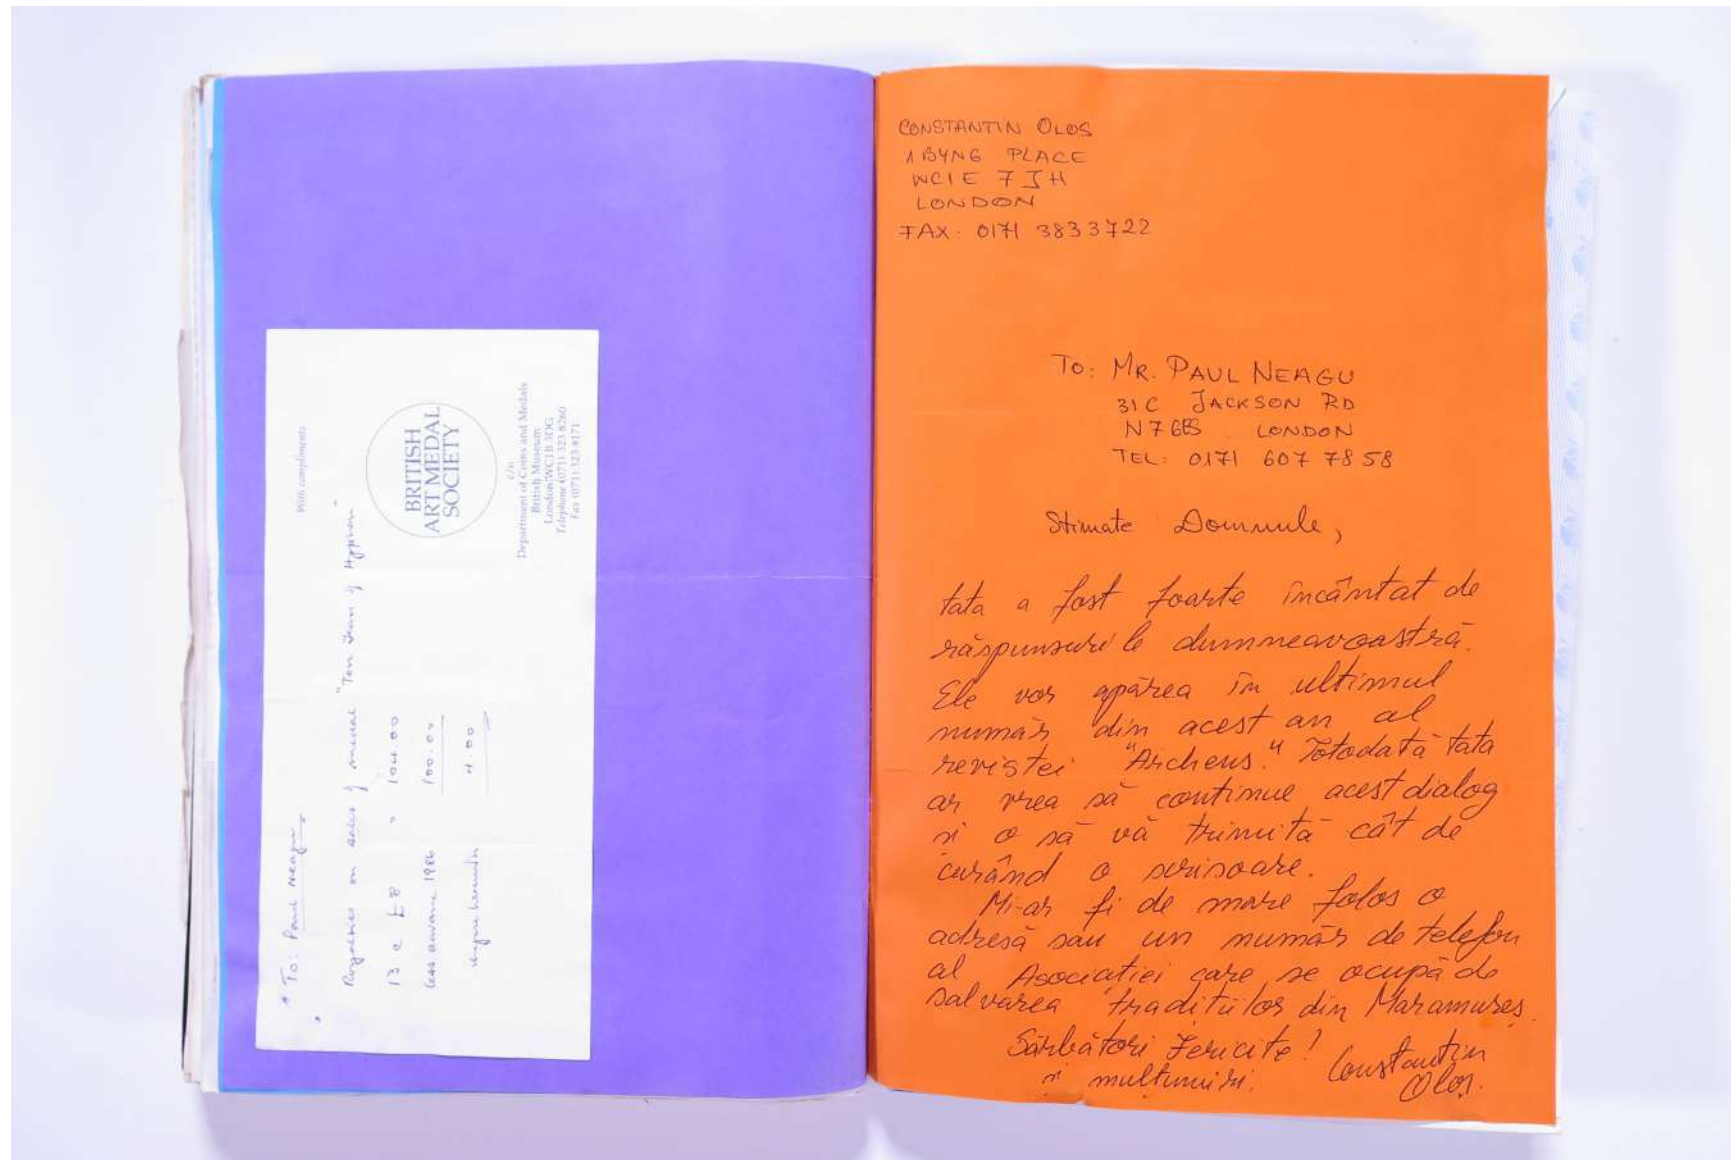 With compliments
BRITISH
ART MEDAL
SOCIETY
c/o
Department of Coins and Medals
British Museum
London WC1B 3DG
Telephone (071) 323 8260
Fax (071) 323 8171
To: Paul Neagu
Royalties on sales of medal "Ten Years of Hyphen"
13 @ £8 = 104.00
less advance 1986 100.00
4.00
CONSTANTIN OLOS
1 BYNG PLACE
WC1E 7JH
LONDON
FAX: 0171 3833722
TO: MR. PAUL NEAGU
31C JACKSON RD
N7 6ES LONDON
TEL: 0171 607 7858
Stimate Domnule,
tata a fost foarte încântat de
răspunsurile dumneavoastră.
Ele vor apărea în ultimul
număr din acest an al
revistei "Archeus." Totodată tata
ar vrea să continue acest dialog
și o să vă trimită cât de
curând o scrisoare.
Mi-ar fi de mare folos o
adresă sau un număr de telefon
al Asociației care se ocupă de
salvarea tradițiilor din Maramureș.
Sărbători Fericite!
și mulțumiri.
Constantin
Olos.